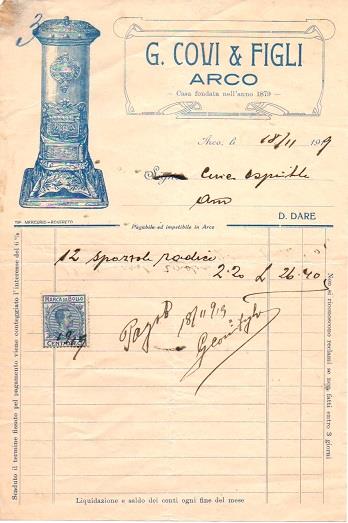 G. COVI & FIGLI
ARCO
Casa fondata nell'anno 1879
Arco, li 18/11 1919
D. DARE
TIP. MERCURIO - ROVERETO
Pagabile ed impetibile in Arco
12 spazzole radice
2.20 £ 26.40
MARCA DA BOLLO
CENT.
Pagato 18/11 919
G Covi & figli
Scaduto il termine fissato pel pagamento verrà conteggiato l'interesse del 6 %
Non si riconoscono reclami se non fatti entro 3 giorni
Liquidazione e saldo dei conti ogni fine del mese